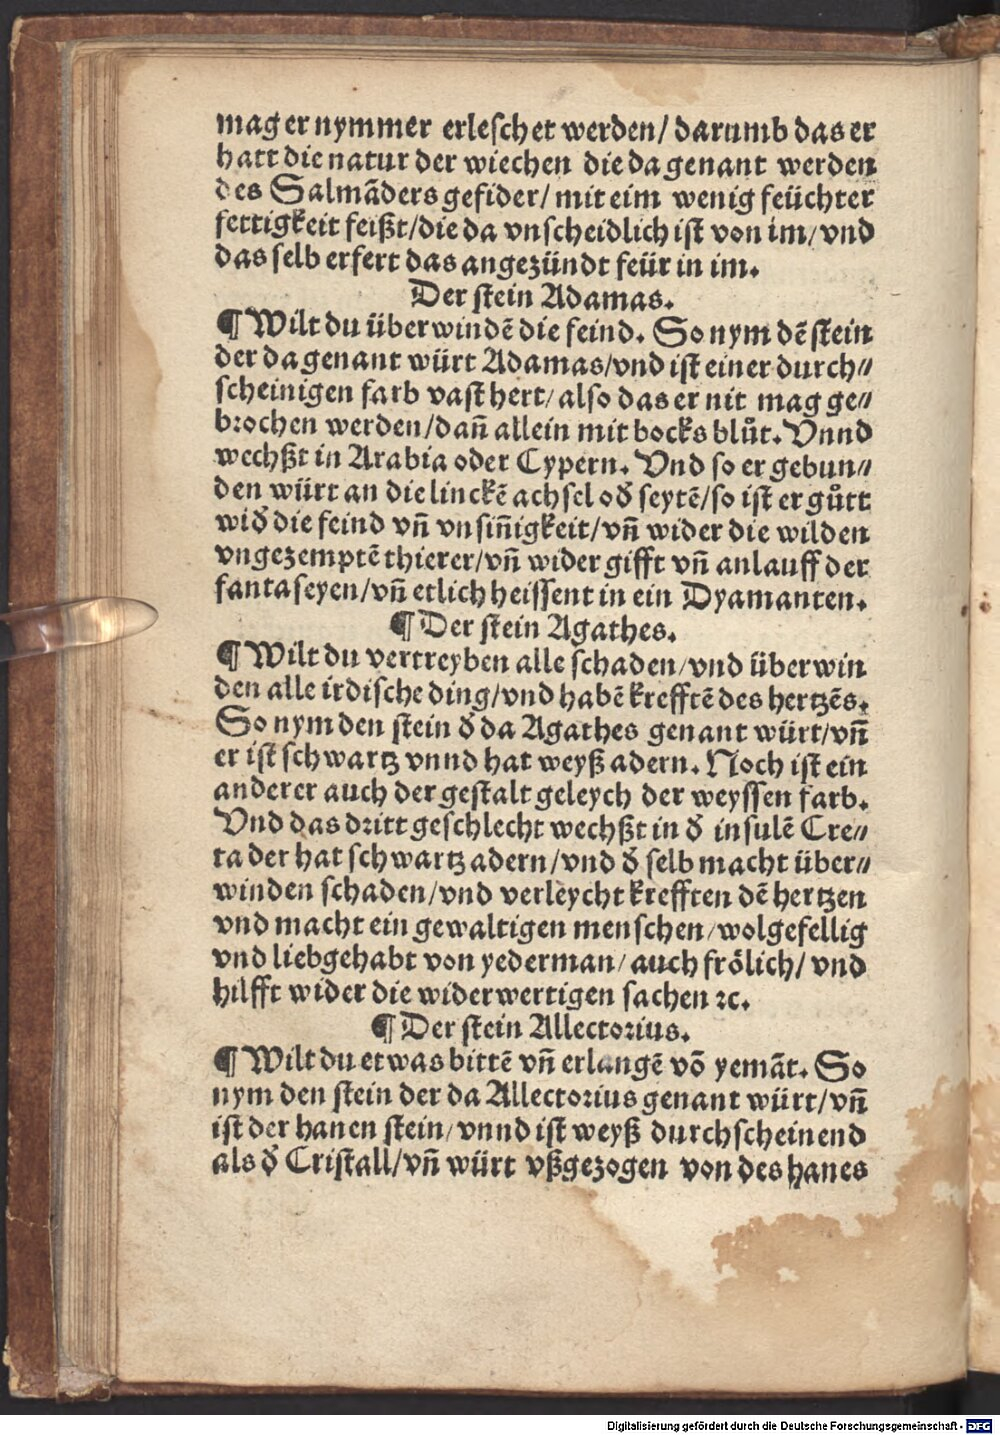 mag er nymmer erleschet werden/ darumb das er
hatt die natur der wiechen die da genant werden
des Salmāders gefider/ mit eim wenig feüchter
fettigkeit feißt/die da vnscheidlich ist von im/vnd
das selb erfert das angezündt feür in im.
Der stein Adamas.
¶ Wilt du überwindē die feind. So nym dē stein
der da genant würt Adamas/vnd ist einer durch⸗
scheinigen farb vast hert/ also das er nit mag ge⸗
brochen werden/dañ allein mit bocks blůt. Vnnd
wechßt in Arabia oder Cypern. Vnd so er gebun⸗
den würt an die linckē achsel oď seytē/so ist er gůtt
wiď die feind vñ vnsiñigkeit/vñ wider die wilden
vngezemptē thierer/vñ wider gifft vñ anlauff der
fantaseyen/vñ etlich heissent in ein Dyamanten.
¶ Der stein Agathes.
¶ Wilt du vertreyben alle schaden/vnd überwin
den alle irdische ding/vnd habē krefftē des hertzēs.
So nym den stein ď da Agathes genant würt/vñ
er ist schwartz vnnd hat weyß adern. Noch ist ein
anderer auch der gestalt geleych der weyssen farb.
Vnd das dritt geschlecht wechßt in ď insulē Cre⸗
ta der hat schwartz adern/vnd ď selb macht über⸗
winden schaden/vnd verleycht krefften dē hertzen
vnd macht ein gewaltigen menschen/wolgefellig
vnd liebgehabt von yederman/ auch frölich/ vnd
hilfft wider die widerwertigen sachen ꝛc.
¶ Der stein Allectorius.
¶ Wilt du etwas bittē vñ erlangē vō yemāt. So
nym den stein der da Allectorius genant würt/vñ
ist der hanen stein/vnnd ist weyß durchscheinend
als ď Cristall/vñ würt vßgezogen von des hanes
Digitalisierung gefördert durch die Deutsche Forschungsgemeinschaft - DFG